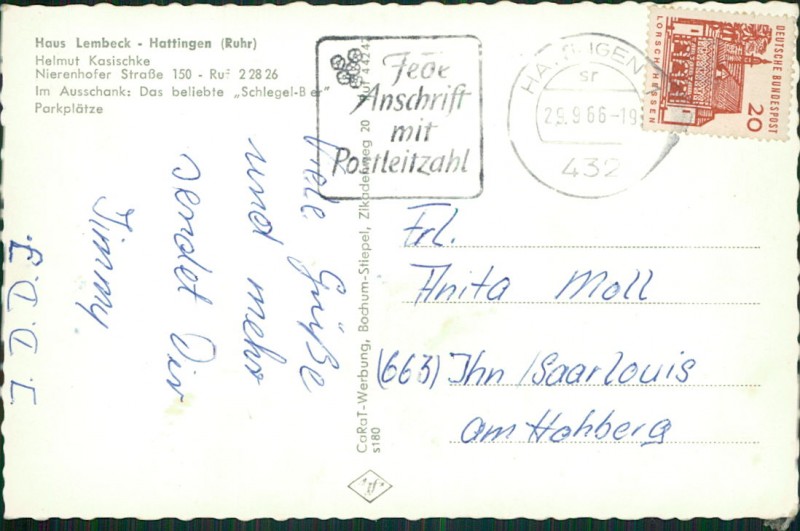 Haus Lembeck - Hattingen (Ruhr)
Helmut Kasischke
Nierenhofer Straße 150 - Ruf 2 28 26
Im Ausschank: Das beliebte „Schlegel-Bier"
Parkplätze
Jede
Anschrift
mit
Postleitzahl
HATTINGEN
29.9.66-19
432
DEUTSCHE BUNDESPOST
20
LORSCH/HESSEN
Viele Grüße
und mehr
sendet Dir
Jimmy
CaRaT-Werbung, Bochum-Stiepel, Zikadenweg 20
s180
Frl.
Anita Moll
(663) Ihn /Saarlouis
am Hohberg